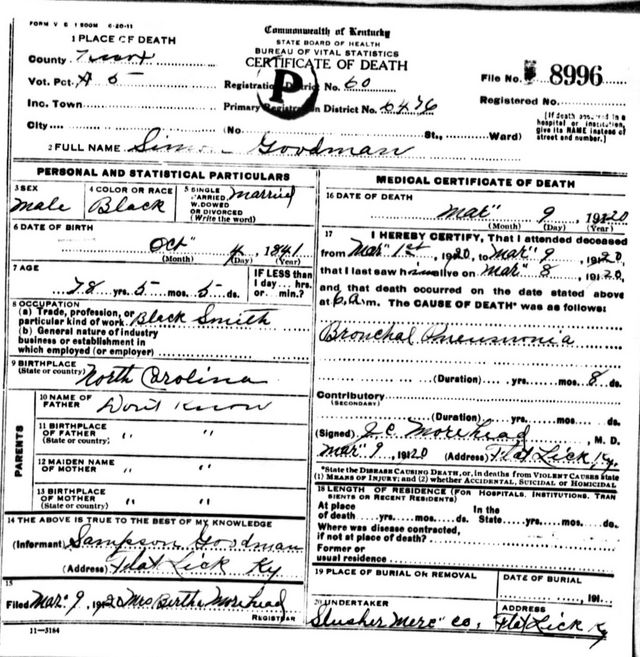 FORM V S 1 500M 6-20-11
Commonwealth of Kentucky
STATE BOARD OF HEALTH
BUREAU OF VITAL STATISTICS
CERTIFICATE OF DEATH
1 PLACE OF DEATH
County Knox
Vot. Pct. A 5
Registration District No. 60
File No. 8996
Inc. Town
Primary Registration District No. 6436
Registered No.
City
(No. St., Ward)
[If death occurred in a
hospital or institution,
give its NAME instead of
street and number.]
P
2 FULL NAME Simon Goodman
PERSONAL AND STATISTICAL PARTICULARS
3 SEX
Male
4 COLOR OR RACE
Black
5 SINGLE
MARRIED,
WIDOWED
OR DIVORCED
(Write the word)
Married
6 DATE OF BIRTH
Oct 4, 1841
(Month) (Day) (Year)
7 AGE
78 yrs. 5 mos. 5 ds.
IF LESS than
1 day... hrs.
or min.?
8 OCCUPATION
(a) Trade, profession, or
particular kind of work Black Smith
(b) General nature of industry
business or establishment in
which employed (or employer)
9 BIRTHPLACE
(State or country) North Carolina
PARENTS
10 NAME OF
FATHER Don't Know
11 BIRTHPLACE
OF FATHER
(State or country) " "
12 MAIDEN NAME
OF MOTHER " "
13 BIRTHPLACE
OF MOTHER
(State or country) " "
14 THE ABOVE IS TRUE TO THE BEST OF MY KNOWLEDGE
(Informant) Sampson Goodman
(Address) Flat Lick Ky
15
Filed Mar. 9, 1920 Mrs Bertha Morehead
REGISTRAR
11—3184
MEDICAL CERTIFICATE OF DEATH
16 DATE OF DEATH
Mar" 9, 19120
(Month) (Day) (Year)
17 I HEREBY CERTIFY, That I attended deceased
from Mar" 1st, 19120, to Mar" 9, 19120,
that I last saw him alive on Mar" 8, 19120,
and that death occurred on the date stated above
at 6 a.m. The CAUSE OF DEATH* was as follows:
Bronchal Pneumonia
(Duration) yrs. mos. 8 ds.
Contributory
(SECONDARY)
(Duration) yrs. mos. ds.
(Signed) J. C. Morehead, M. D.
Mar" 9, 19120 (Address) Flat Lick Ky.
*State the DISEASE CAUSING DEATH, or, in deaths from VIOLENT CAUSES state
(1) MEANS OF INJURY; and (2) whether ACCIDENTAL, SUICIDAL or HOMICIDAL
18 LENGTH OF RESIDENCE (FOR HOSPITALS, INSTITUTIONS, TRAN
SIENTS OR RECENT RESIDENTS)
At place In the
of death yrs. mos. ds. State yrs. mos. ds.
Where was disease contracted,
if not at place of death?
Former or
usual residence
19 PLACE OF BURIAL OR REMOVAL
DATE OF BURIAL
, 191
20 UNDERTAKER
Slusher Merc" co,
ADDRESS
Flat Lick Ky